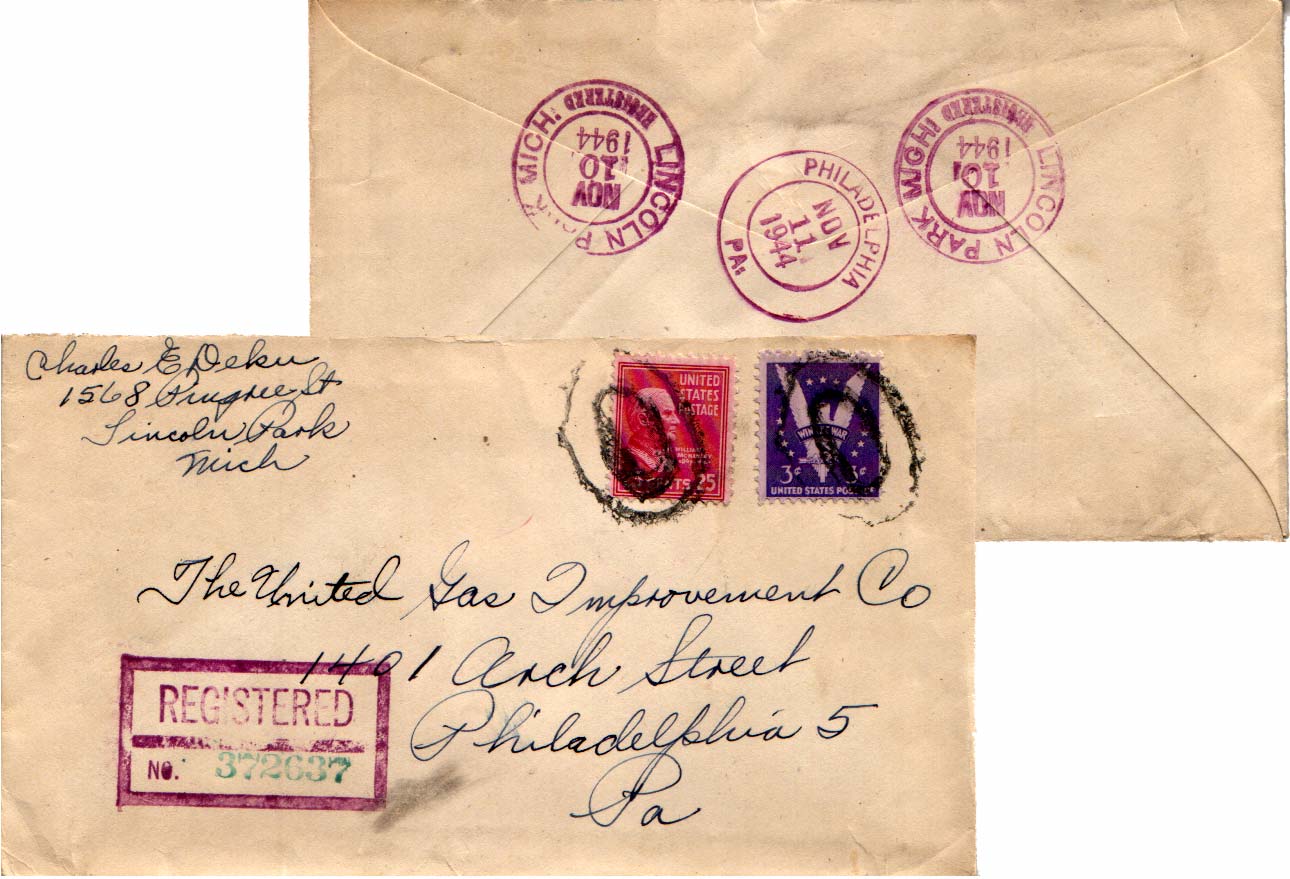 LINCOLN PARK MICH.
REGISTERED
NOV
10
1944
PHILADELPHIA
NOV
11
1944
PA.
LINCOLN PARK MICH
REGISTERED
NOV
10
1944
Charles E Deku
1568 Pingree St
Lincoln Park
Mich
UNITED
STATES
POSTAGE
WILLIAM
MCKINLEY
CENTS 25
WIN THE WAR
3¢ 3¢
UNITED STATES POSTAGE
The United Gas Improvement Co
1401 Arch Street
Philadelphia 5
Pa
REGISTERED
NO. 372637